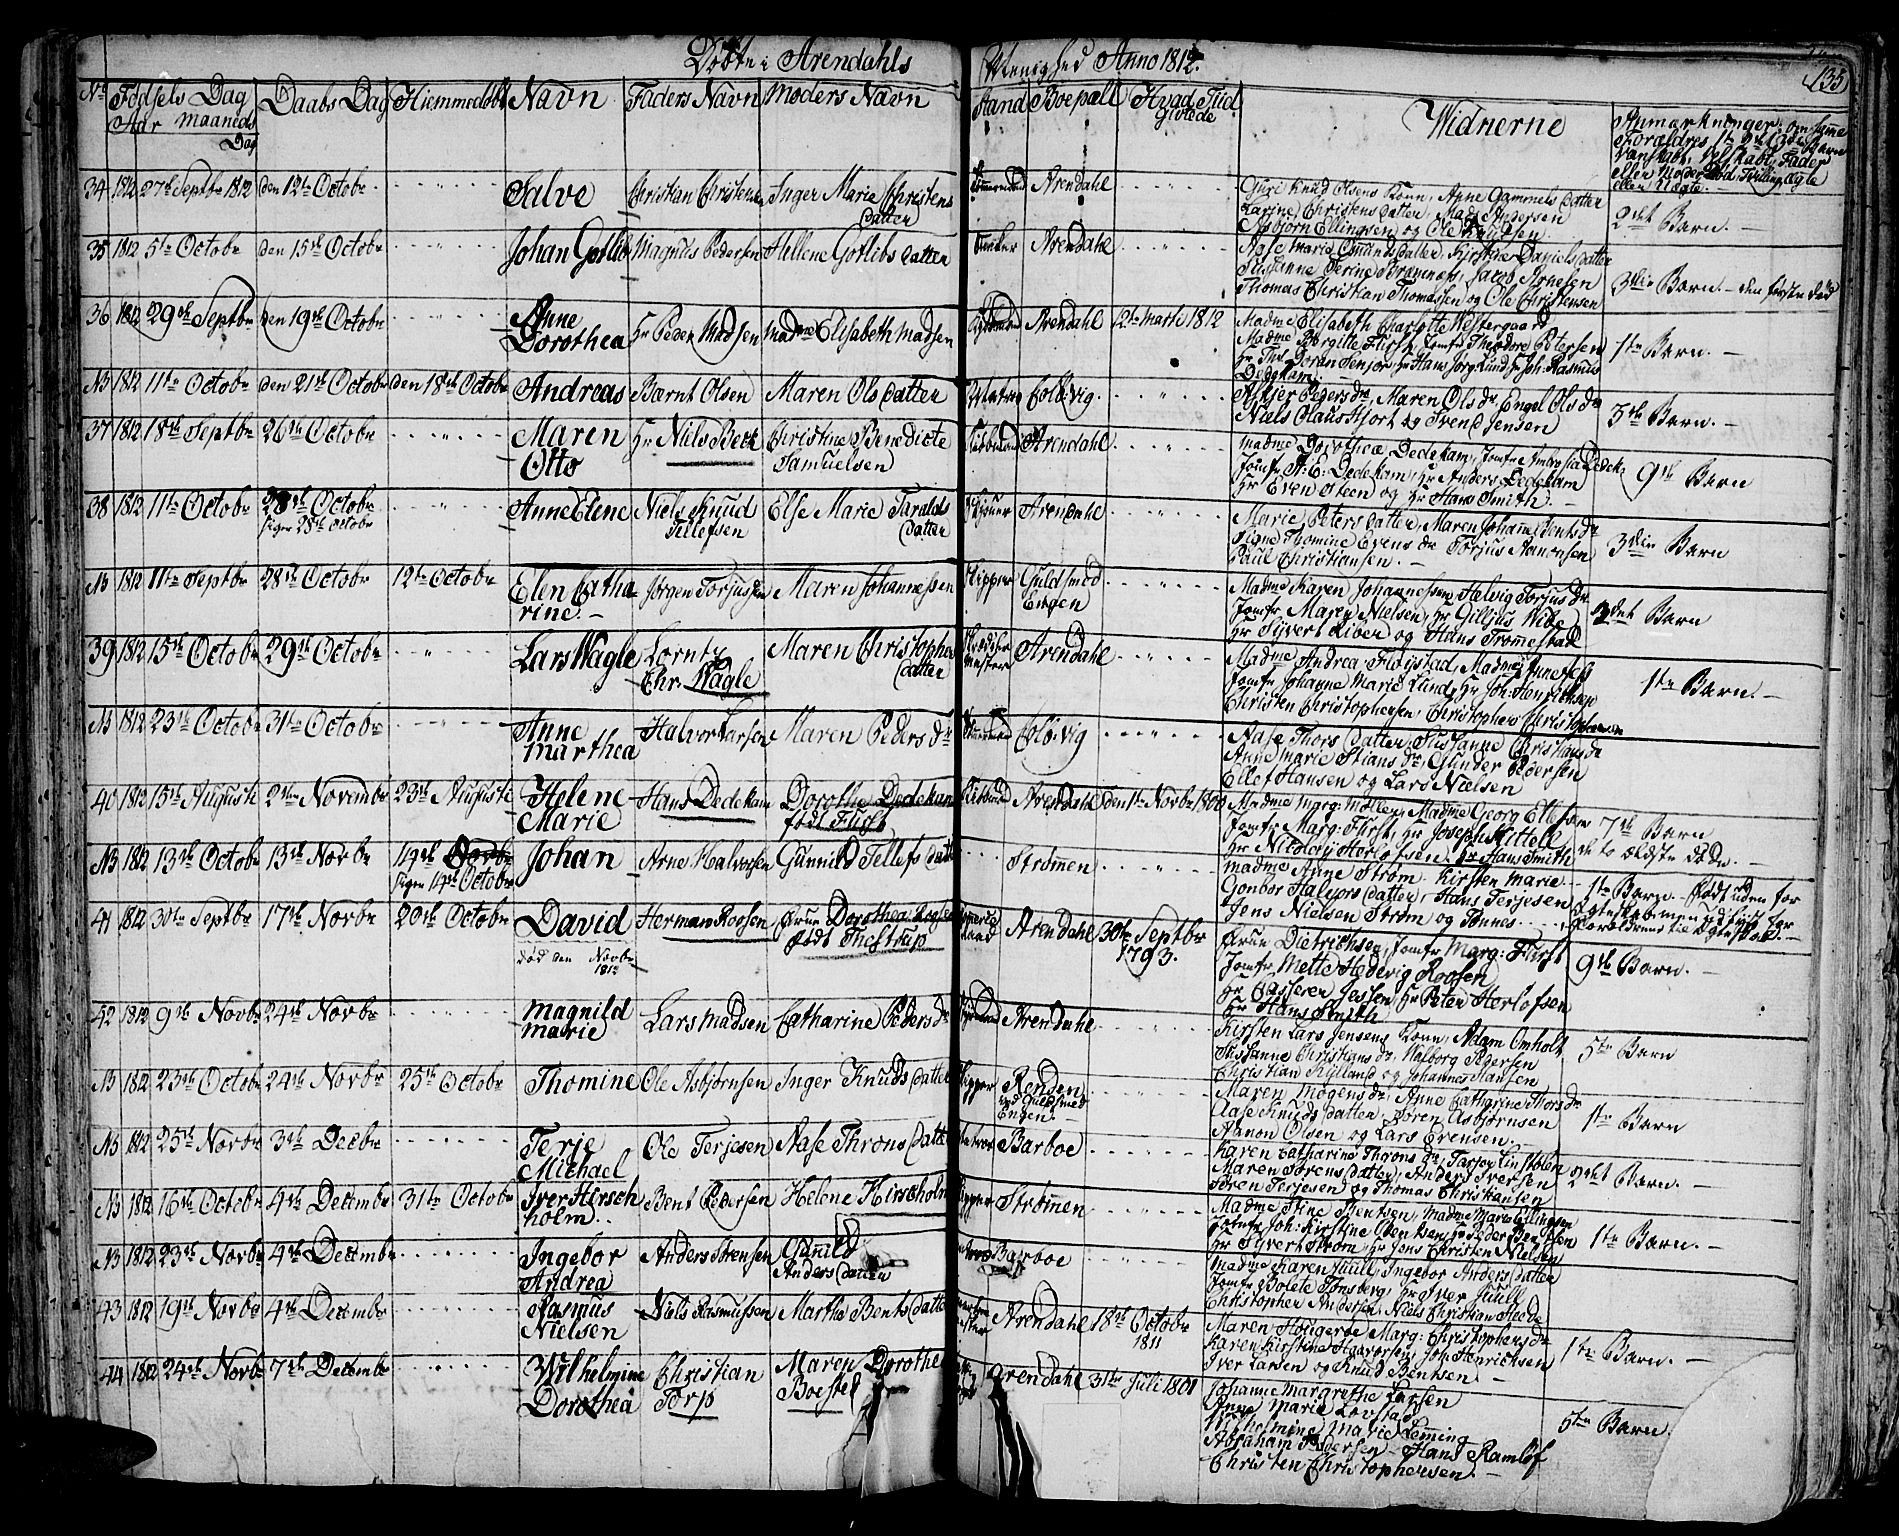 Døbte i Arendahls Menighed Anno 1812.
135
No Fødsels Dag Daabs Dag Hiemmedøbt Navn Faders Navn Moders Navn Stand Boepæll Hvad Tiid Widnerne Anmærkninger om samme
Aar Maaneds Givtede
Dag
34 1812 27de Septbr 1812 den 12te Octobr Salve Christian Christens Inger Marie Christens Arendahl
Datter
Guri Knud Olsens Konn, Anne Gammels Datter
Karine Christens Datter, Mads Andersen
Asbjørn Ellingsen og Ole Knudsen
2det Barn.
35 1812 5te Octobr den 15de Octobr Johan Gotlib Magnus Pedersen Hellene Gotlibs Datter Arendahl
Aase Marie Omunds Datter, Kirstine Daniels Datter
Susanne Terine Jacob Arnesen
Thomas Christian Thomassen og Ole Christensen
3die Barn. den første død
36 1812 29de Septbr den 19de Octobr Anne Hr Peder Madsen Madme Elisabeth Madsen Arendahl 12te Marti 1812
Dorothea
Madme Elisabeth Charlotte Westergaard
Madme Birgitte Fürst, Jomfr Theodore Petersen
Hr Ths Joran Senjor, Hr Hans Jørg Lund, Hr Joh: Rasmus
Dedekam
1te Barn.
NB 1812 11te Octobr den 21de Octobr den 18de Octobr Andreas Bærnt Olsen Maren Ols Datter Colbvig.
Maren Ols Dr, Engel Ols Dr
Niels Claus Hjort og Svend Jensen
3de Barn.
37 1812 18de Septbr 26de Octobr Maren Hr Niels Beck Christine Benedicte Arendahl
Otto Samuelsen
Madme Dorothea Dedekam, Jomfr Ambrosia Dedek
Jomfr A: C: Dedekam, Hr Anders Dedekam
Hr Even Steen og Hr Hans Smith.
9de Barn
38 1812 11te Octobr 28de Octobr Anne Elene Niels Knud Else Marie Taralds Arendahl
siger 28de Octobr Tellefsen Datter
Marie Peters Datter, Maren Johanne Bents Dr
Signe Thomine Evens Dr Torjus Aanensen
Paul Christiansen.
3die Barn
NB 1812 11te Septbr 28de Octobr 12te Octobr Elen Catha Jørgen Torjussen Maren Johannessen Skipper Guldsmed
rine. Engen
Madme Karen Johannessen, Helvig Torjus Dr
Jomfr Maren Nielsen, Hr Gillius Wibe
Hr Syvert Liber og Hans Tromestad
2det Barn
39 1812 15de Octobr 29de Octobr Lars Wagle Lorntz Maren Christopher Arendahl
Chr. Wagle Datter
Madme Andrea Fløistad, Madme
Jomfr Johanne Marie Lund, Hr Joh: Henrichsen
Christen Christophersen, Christopher Christophersen
1te Barn.
NB 1812 23de Octobr 31te Octobr Anne Halvor Larsen Maren Peders Dr Colbvig
Marthea
Aase Thors Datter, Susanne Christians Dr
Anne Marie Stians Dr, Gunder Pedersen
Ellef Hansen og Lars Nielsen
40 1812 15de Augusti 2den Novembr 23de Augusti Helene Hans Dedekam Dorothe Dedekam Arendahl den 1te Novbr 1800
Marie født Fligh
Madme Marg: Møller, Madme Georg Ellefsen
Jomfr Marg: Fürst, Hr Joseph Kittell
Hr Nicolay Herlofsen, Hr Hans Smith
7de Barn
de to ældste døde.
NB 1812 13de Octobr 13de Novbr 14de Johan Arne Halvorsen Gunnild Tellefs Datter Strømen
siger 14de Octobr
Madme Anne Strøm, Kirsten Marie
Gonbor Halvors Datter, Hans Terjesen
Jens Nielsen Strøm og Tønnes
1te Barn. født uden for
41 1812 30te Septbr 17de Novbr 20de Octobr David Herman Roosen Frue Dorothea Roosen Arendahl 30te Septbr
født Thestrup 1793.
død den Novbr
1812
Frue Dietrichsen, Jomfr Marg: Fürst
Jomfr Mette Hedevig Roosen
Hr Casseren Jessen, Hr Peter Herlofsen
Hr Hans Smith
9de Barn.
52 1812 9de Novbr 24de Novbr Magnild Lars Madsen Catharine Peders Dr Arendahl
Marie
Kirsten Lars Jensens Konn, Adam Omholt
Susanne Christians Dr, Walborg Pedersen
Christian Kylland og Johannes Hansen
5te Barn
NB 1812 23de Octobr 24de Novbr 25de Octobr Thomine Ole Asbjørnsen Inger Knuds Datter Skipper Renden
ved Guldsmed
Engen.
Maren Mogens Dr, Anne Catharine Thors Dr
Aase Knuds Datter, Søren Asbjørnsen
Aanon Olsen og Lars Evensen.
1te Barn
NB 1812 25de Novbr 3de Decbr Terje Ole Terjesen Aase Throns Datter Barboe
Michael
Karen Catharine Throns Dr, Tarjer Linstølen
Maren Sørens Datter, Anders Iversen
Søren Terjesen og Thomas Christiansen
2det Barn.
NB 1812 16de Octobr 4de Decembr 31te Octobr Iver Hirsch Bent Pedersen Helene Hirscholm Skipper Strømen
holm.
Madme Stine Bentsen, Madme Marie Ellingsen
Jomfr Joh: Kirstine Bentsen, Hr Peder Bentsen
Hr Syvert Strøm, Hr Jens Christen Nielsen
1te Barn.
NB 1812 23de Novbr 4de Decembr Ingebor Anders Sørensen Gunild Barboe
Andrea Anders Datter
Madme Karen Juull, Ingebor Anders Datter
Jomfr Bolete Tønsberg, Hr Iver Juull
Christopher Andersen, Niels Christian Thede
43 1812 19de Novbr 4de Decembr Rasmus Niels Rasmussen Martha Bents Datter Arendahl 18de Octobr
Nielsen 1811
Maren Hougerøe, Marg: Christophers Dr
Karen Kirstine Haavorsen, Joh: Henrichsen
Iver Larsen og Knud Bentsen.
1te Barn.
44 1812 24de Novbr 7de Decembr Wilhelmine Christian Maren Dorothe Arendahl 31te Juli 1801
Dorothea Torp Boestel
Johanne Margrethe Larsen
Anne Marie Lovstad
Wilhelmine Marie Leming
Abraham Pedersen - Hans Ramlöf
Christen Christophersen.
5te Barn.